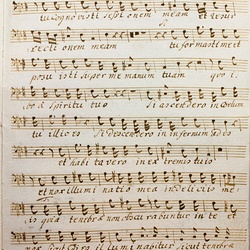 tu cognovisti sessionem meam et resur
rectionem meam tu formasti me et
posuisti super me manum tuam quo i
bo à Spiritu tuo Si ascendero in Coelum
tu illic es Si descendero in infernum ades
et habitavero in extremis tuis
et nox illuminatio mea in deliciis me
is quia tenebrae non obscurabuntur in te et
nox sicut dies illuminabitur sicut tenebrae